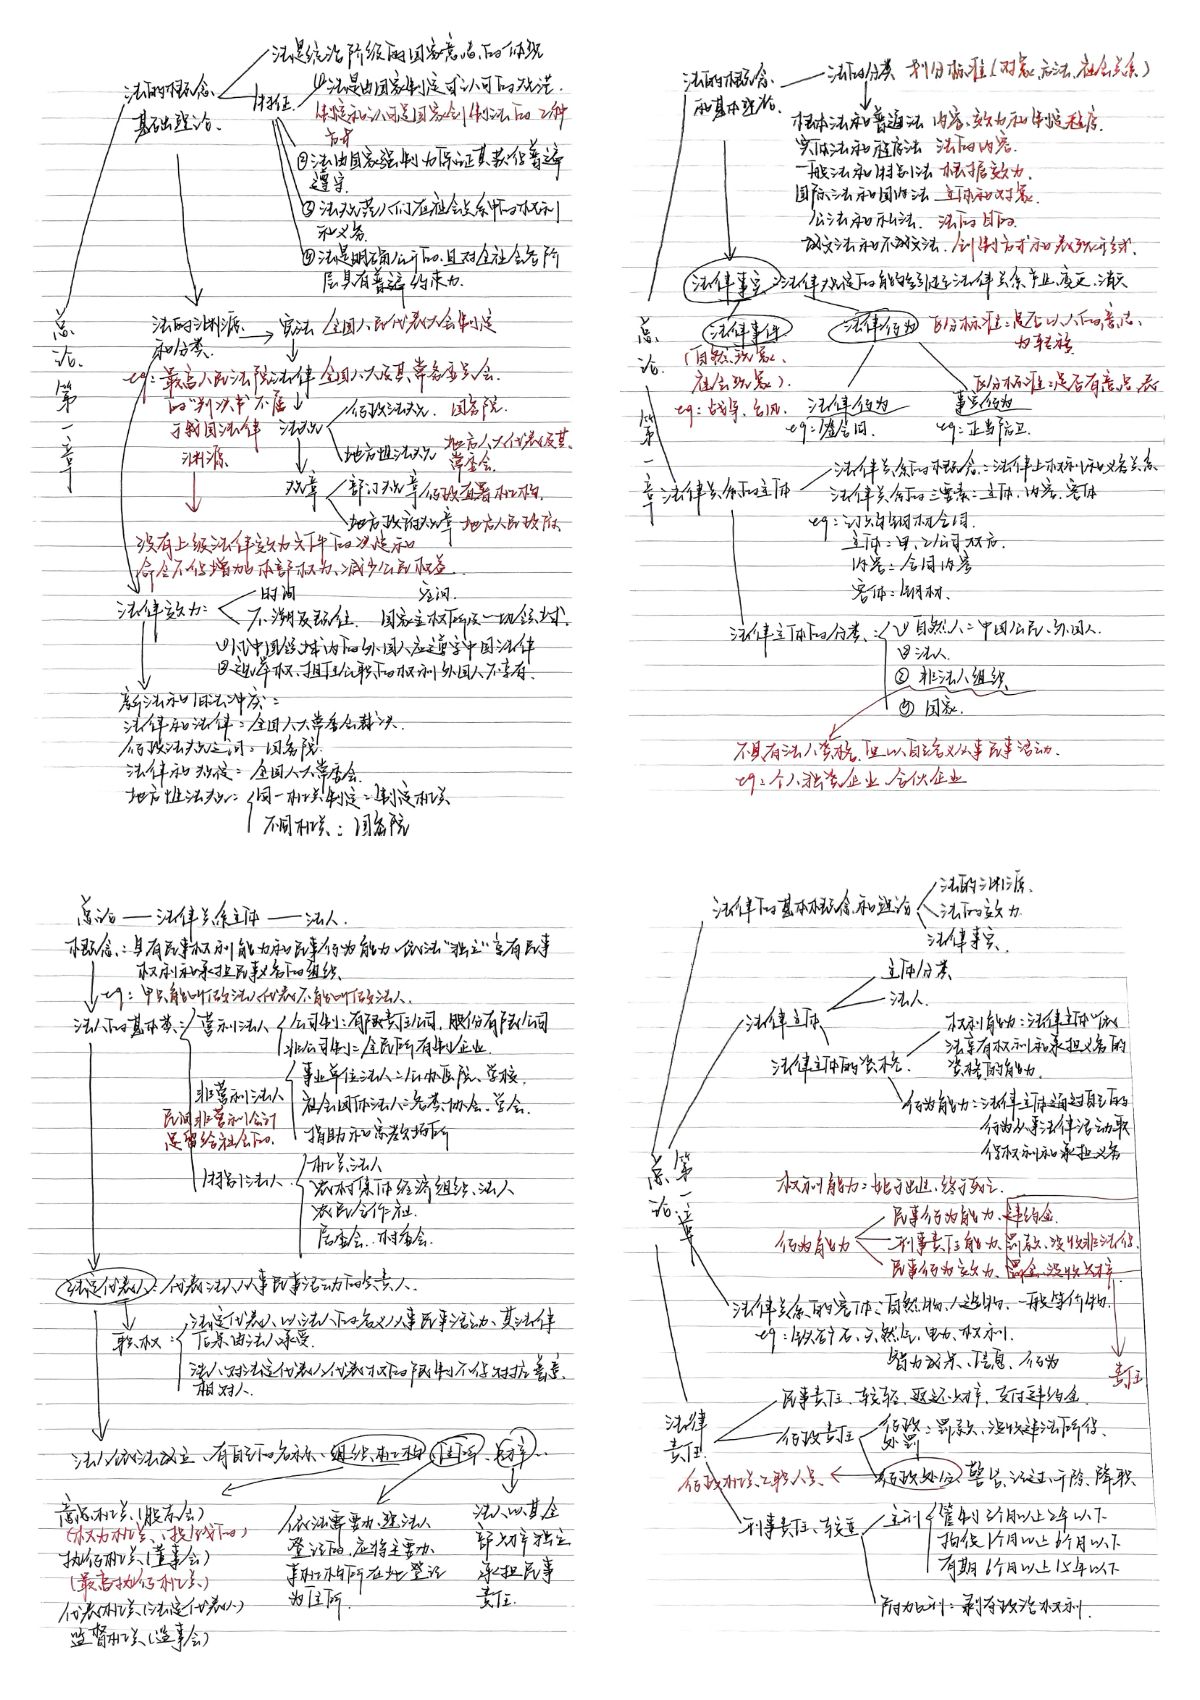 总论.第一章
法的概念.
基础理论.
法是统治阶级的国家意志的体现
特征
①法是由国家制定或认可的规范.
制定和认可是国家创制法的二种
方式
②法由国家强制力保证其获得普遍
遵守.
③法规范人们在社会关系中的权利
和义务.
④法是明确公开的.且对全社会各阶
层具有普遍约束力.
法的渊源
和分类.
宪法 全国人民代表大会制定
eg：最高人民法院
的"判决书"不属
于我国法律
渊源.
法律 全国人大及其常务委员会.
法规
行政法规 国务院.
地方性法规 地方人大代表及其
常委会.
规章
部门规章 行政直署机构.
地方政府规章 地方人民政府.
没有上级法律效力文件的决定和
命令不得增加本部权力、减少公民权益.
法律效力：
时间 空间.
不溯及既往. 国家主权所及一切领域.
①凡中国领域内的外国人应遵守中国法律
②选举权、担任公职的权利外国人不享有.
新法和旧法冲突：
法律和法律：全国人大常委会裁决.
行政法规之间：国务院.
法律和规定：全国人大常委会.
地方性法规：
同一机关制定：制定机关
不同机关：国务院
总论.第一章
法的概念
和基本理论.
法的分类 划分标准(对象、方法、社会关系)
根本法和普通法 内容、效力和制定程序.
实体法和程序法 法的内容.
一般法和特别法 根据效力.
国际法和国内法 主体和对象.
公法和私法. 法的目的.
成文法和不成文法. 创制方式和表现形式.
法律事实 法律规定的能够引起法律关系产生、变更、消灭
法律事件
(自然现象、
社会现象).
eg：战争、台风.
法律行为 区分标准：是否以人的意志
为转移
区分标准：是否有意思表
法律行为
eg：签合同.
事实行为
eg：正当防卫.
法律关系的主体
法律关系的概念：法律上权利和义务关系.
法律关系的三要素：主体、内容、客体
eg：订立钢材合同.
主体：甲、乙公司双方.
内容：合同内容
客体：钢材.
法律主体的分类：
①自然人：中国公民、外国人.
②法人.
③非法人组织.
④国家.
不具有法人资格.但以自己名义从事民事活动.
eg：个人独资企业、合伙企业
总论——法律关系主体——法人.
概念：具有民事权利能力和民事行为能力、依法"独立"享有民事
权利和承担民事义务的组织.
eg：甲只能叫做法人代表不能叫做法人.
法人的基本类：
营利法人
公司制：有限责任公司、股份有限公司
非公司制：全民所有制企业.
非营利法人
民间非营利会计
是留给社会的.
事业单位法人：公办医院、学校.
社会团体法人：党类、协会、学会.
捐助和宗教场所
特别法人
机关法人
农村集体经济组织、法人
农民合作社.
居委会、村委会.
法定代表人：代表法人从事民事活动的负责人.
职权：
法定代表人以法人的名义从事民事活动、其法律
后果由法人承受.
法人对法定代表人代表权的限制不得对抗善意
相对人.
法人依法成立、有自己的名称、组织机构、住所、财产.
意思机关(股东会)
(权力机关、投钱的)
执行机关(董事会)
(最高执行机关)
代表机关(法定代表人)
监督机关(监事会)
依法需要办理法人
登记的、应将主要办
事机构所在地登记
为住所.
法人以其全
部财产独立
承担民事
责任.
总论.第一章
法律的基本概念和理论
法的渊源.
法的效力
法律事实.
法律主体
主体分类
法人.
法律主体的资格
权利能力：法律主体依
法享有权利和承担义务的
资格的能力.
行为能力：法律主体通过自己的
行为从事法律活动取
得权利和承担义务
权利能力：始于出生、终于死亡.
行为能力
民事行为能力、违约金.
刑事责任能力、罚款、没收非法得.
民事行为效力、罚金、没收财产
责任
法律关系的客体：自然物、人造物、一般等价物.
eg：铁矿石、天然气、电力、权利.
智力成果、信息、行为
法律
责任.
民事责任、较轻、返还财产、支付违约金.
行政责任
行政
处罚：罚款、没收违法所得.
行政处分 警告、记过、开除、降职
行政机关工职人员
刑事责任、较重
主刑
管制 3个月以上2年以下
拘役 1个月以上6个月以下
有期 6个月以上15年以下
附加刑：剥夺政治权利.